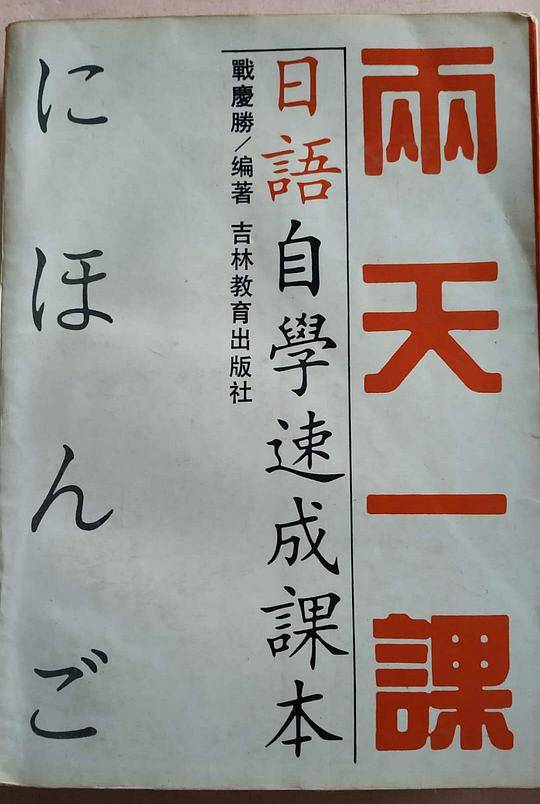 兩天一課
日語自學速成課本
戰慶勝/编著 吉林教育出版社
にほんご